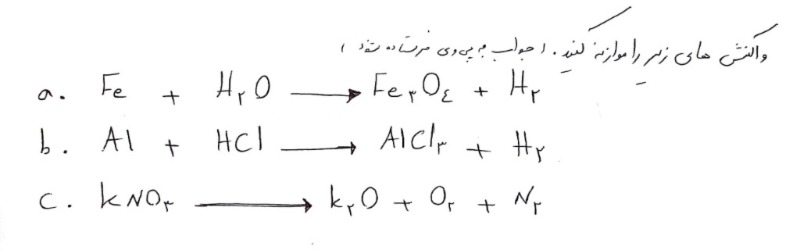 واکنش های زیر را موازنه کنید. (جواب به پی وی فرستاده شود)
a. Fe + H۲O ⟶ Fe۳O٤ + H۲
b. Al + HCl ⟶ AlCl۳ + H۲
c. KNO۳ ⟶ K۲O + O۲ + N۲